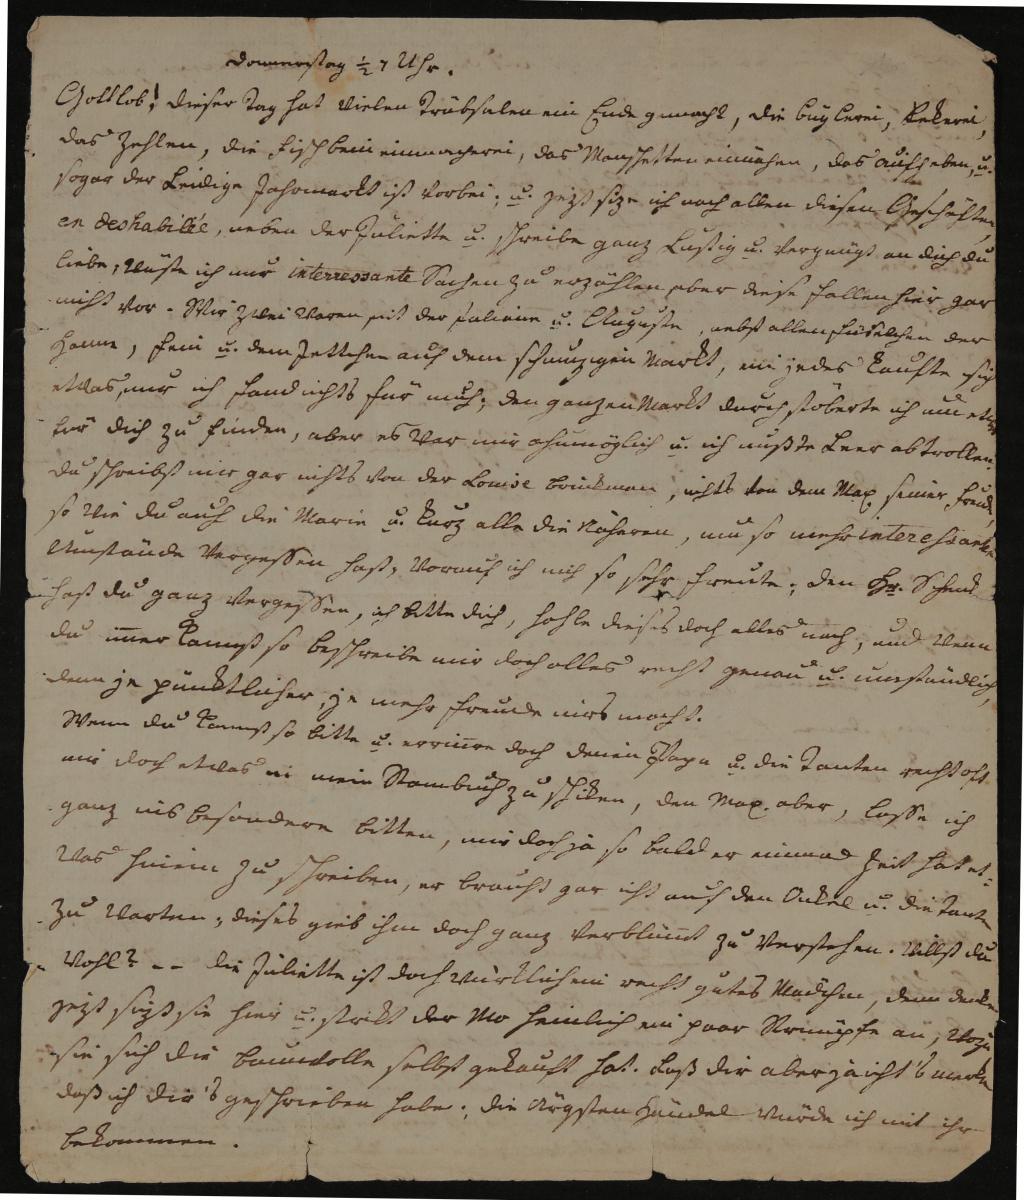 Donnerstag ½ 7 Uhr.
Gottlob! dieser Tag hat vielen Trübsalen ein Ende gemacht, die büglerei, Bekerei,
das Zehlen, die Fischbein einmacherei, das Manschetten einnähen, das aufheben, u.
sogar der Leidige Jahrmarkt ist vorbei; u. jezt size ich nach allen diesen Geschäften,
en deshabillée, neben der Juliette u. schreibe ganz Lustig u. Vergnügt an dich du
liebe, wüste ich nur interressante Sachen zu erzählen, aber diese fallen hier gar
nicht vor. Wir zwei waren mit der Juliane u. Auguste, nebst allen der
Hanne, u. dem Jettchen auf dem schmuzigen Markt, ein jedes kaufte sich
etwas, nur ich fand nichts für mich; den ganzen Markt durchstöberte ich um etwas
für dich zu finden, aber es war mir ohnmöglich u. ich mußte Leer abtrollen.
du schreibst mir gar nichts von der Louise Brinkman, nichts von dem Max seiner Freude,
so wie du auch die Marie u. kurz alle die Näheren, um so mehr interessanten
Umstände Vergessen hast, worauf ich mich so sehr freute; den Hr. Schenk
hast du ganz Vergessen, ich bitte dich, hohle dieses doch alles nach, und wenn
du immer kannst so beschreibe mir doch alles recht genau u. umständlich,
denn je pünktlicher, je mehr Freude mirs macht.
Wenn du kannst so bitte u. errinnre doch deinen Papa u. die Tanten recht oft
mir doch etwas in mein Stambuch zu schiken, den Max. aber, lasse ich
ganz insbesondere bitten, mir doch ja so bald er einmal Zeit hat et-
was hinein zu schreiben, er braucht gar icht auf den Onkel u. die Tante
zu warten; dieses gieb ihm doch ganz Verblümt zu Verstehen. Willst du
wohl? -- die Juliette ist doch würklich ein recht gutes Mädchen, denn denke
jezt sizt sie hier u. strikt der Mo heimlich ein paar Strümpfe an, wozu
sie sich die baumwolle selbst gekauft hat. Laß dir aber ja icht's merken
daß ich dir's geschrieben habe; die Ärgsten Händel würde ich mit ihr
bekommen.